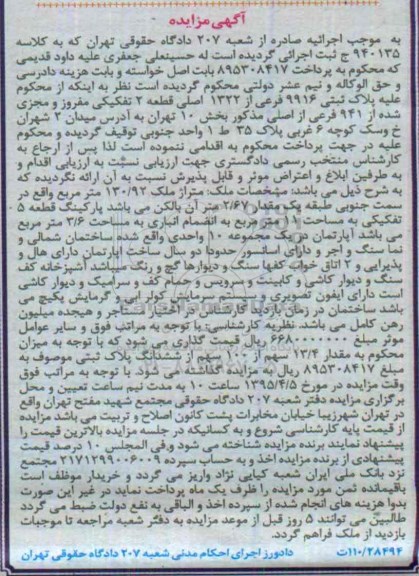 آگهی مزایده
به موجب اجرائیه صادره از شعبه ۲۰۷ دادگاه حقوقی تهران که به کلاسه
۹۴۰۱۳۵ ج ثبت اجرائی گردیده است له حسینعلی جعفری علیه داود قدیمی
که محکوم به پرداخت ۸۹۵۳۰۸۴۱۷ بابت اصل خواسته و بابت هزینه دادرسی
و حق الوکاله و نیم عشر دولتی محکوم گردیده است نظر به اینکه از محکوم
علیه پلاک ثبتی ۹۹۱۶ فرعی از ۱۳۲۲ اصلی قطعه ۲ تفکیکی مفروز و مجزی
شده از ۹۴۱ فرعی از اصلی مذکور بخش ۱۰ تهران به آدرس میدان ۲ شهران
خ وسک کوچه ۶ غربی پلاک ۳۵ ط ۱ واحد جنوبی توقیف گردیده و محکوم
علیه در جهت پرداخت محکوم به اقدامی ننموده است لذا پس از ارجاع به
کارشناس منتخب رسمی دادگستری جهت ارزیابی نسبت به ارزیابی اقدام و
به طرفین ابلاغ و اعتراض موثر و قابل پذیرش نسبت به آن ارائه نگردیده که
به شرح ذیل می باشد: مشخصات ملک: متراژ ملک ۱۳۰/۹۲ متر مربع واقع در
سمت جنوبی طبقه یک مقدار ۲/۶۷ متر آن بالکن می باشد پارکینگ قطعه ۵
تفکیکی به مساحت متر مربع به انضمام انباری به مساحت ۳/۶ متر مربع
می باشد آپارتمان در یک مجموعه ۱۰ واحدی واقع شده ساختمان شمالی و
نما سنگ و آجر و دارای آسانسور حدودا دو سال ساخت آپارتمان دارای هال و
پذیرایی و ۲ اتاق خواب کفها سنگ و دیوارها گچ و رنگ میباشد آشپزخانه کف
سنگ و دیوار کاشی و کابینت و سرویس و حمام کف و سرامیک و دیوار کاشی
است دارای آیفون تصویری و سیستم سرمایش کولر آبی و گرمایش پکیج می
باشد ساختمان در زمان بازدید کارشناس در اختیار مستاجر و هیجده میلیون
رهن کامل می باشد. نظریه کارشناسی: با توجه به مراتب فوق و سایر عوامل
موثر مبلغ ریال قیمت گذاری می شود که با توجه به میزان
محکوم به مقدار ۱۳/۴ سهم از ۱۰۰ سهم از ششدانگ پلاک ثبتی موصوف به
مبلغ ۸۹۵۳۰۸۴۱۷ ریال به مزایده گذاشته می شود. با توجه به مراتب فوق
وقت مزایده در مورخ ۱۳۹۵/۴/۵ ساعت ۱۰ به مدت نیم ساعت تعیین و محل
برگزاری مزایده دفتر شعبه ۲۰۷ دادگاه حقوقی مجتمع شهید مفتح تهران واقع
در تهران شهرزیبا خیابان مخابرات پشت کانون اصلاح و تربیت می باشد مزایده
از قیمت پایه کارشناسی شروع و به کسانیکه در جلسه مزایده بالاترین قیمت را
پیشنهاد نمایند برنده مزایده شناخته می شود و فی المجلس ۱۰ درصد قیمت
پیشنهادی از برنده مزایده اخذ و به حساب سپرده ۲۱۷۱۲۹۹۰۰۶۰۰۹ مجتمع
نزد بانک ملی ایران شعبه کیایی نژاد واریز می گردد و خریدار موظف است
باقیمانده ثمن مورد مزایده را ظرف یک ماه پرداخت نماید در غیر این صورت
بدوا هزینه های انجام شده از سپرده اخذ و الباقی به نفع دولت ضبط می گردد
طالبین می توانند ۵ روز قبل از موعد مزایده به دفتر شعبه مراجعه تا موجبات
بازدید از ملک فراهم گردد.
۱۱۰/۲۸۴۹۴ت دادورز اجرای احکام مدنی شعبه ۲۰۷ دادگاه حقوقی تهران